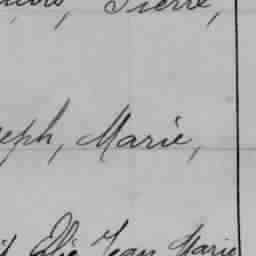 Pierre,
eph, Marie,
Elie Jean Marie